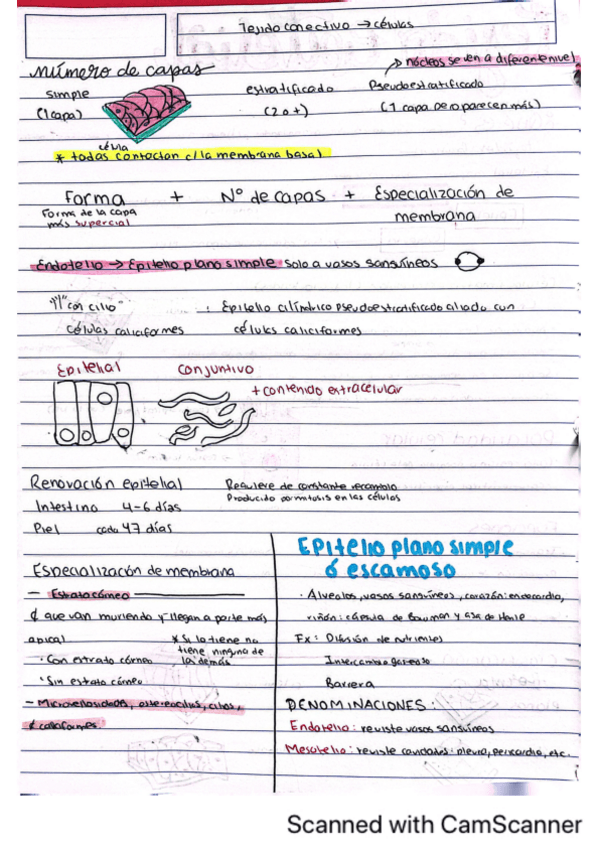 Tejido conectivo → células
→ núcleos se ven a diferente nivel
número de capas
simple estratificado Pseudoestratificado
(1 capa) (2 o +) (1 capa pero parecen más)
célula
* todas contactan c/ la membrana basal
Forma + N° de capas + Especialización de
Forma de la capa membrana
más superficial
Endotelio → Epitelio plano simple solo a vasos sanguíneos
"con cilio" : Epitelio cilíndrico pseudoestratificado ciliado con
células caliciformes células caliciformes
Epitelial conjuntivo
+ contenido extracelular
Renovación epitelial Requiere de constante recambio
Intestino 4-6 días Producido por mitosis en las células
Piel cada 47 días
Epitelio plano simple
ó escamoso
Especialización de membrana
- Estrato córneo
¢ que van muriendo y llegan a parte más
apical
* Si lo tiene no
tiene ninguna de
las demás
· Con estrato córneo
· Sin estrato córneo
- Microvellosidades, estereocilios, cilios,
¢ caliciformes.
· Alveolos, vasos sanguíneos, corazón: endocardio,
riñón: cápsula de Bowman y asa de Henle
Fx: Difusión de nutrientes
Intercambio gaseoso
Barrera
DENOMINACIONES:
Endotelio: reviste vasos sanguíneos
Mesotelio: reviste cavidades: pleura, pericardio, etc.
Scanned with CamScanner